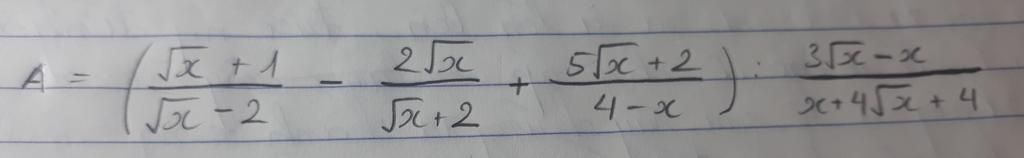 A = ( (√x + 1)/(√x - 2) - (2√x)/(√x + 2) + (5√x + 2)/(4 - x) ) : (3√x - x)/(x + 4√x + 4)